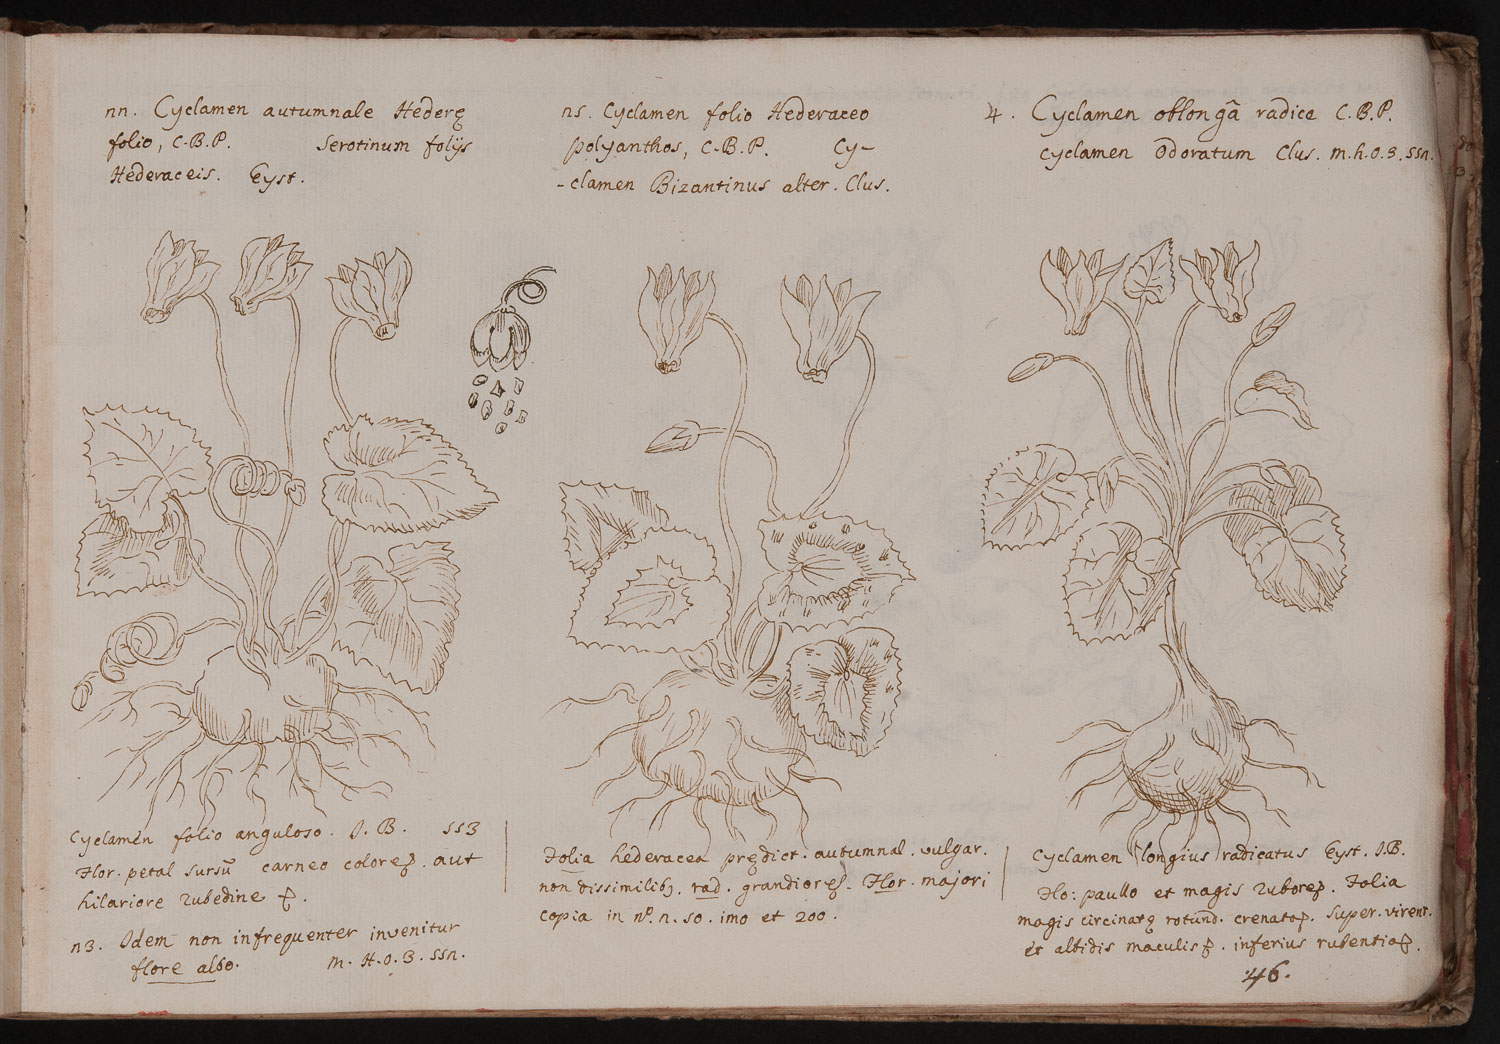 nn. Cyclamen autumnale Hederę
folio, C.B.P. Serotinum folijs
Hederaceis. Eyst.
ns. Cyclamen folio Hederaceo
polyanthos, C.B.P. Cy-
-clamen Bizantinus alter. Clus.
4. Cyclamen oblongâ radice C.B.P.
Cyclamen Odoratum Clus. m.h.o.3.ssn.
Cyclamen folio anguloso. I.B. 553
Flor. petal sursū carneo colore. aut
hilariore rubedine
n3. Idem non infrequenter invenitur
flore albo. M.H.o.3.ssn.
Folia hederacea prędict. autumnal. vulgar.
non dissimilib. rad. grandiores. Flor. majori
copia in nº. n. 50. imo et 200.
Cyclamen longius radicatus Eyst. I.B.
Flo: paullo et magis rubore. Folia
magis circinatę rotund. crenata. super. virent.
et albidis maculis. inferius rubentia.
46.